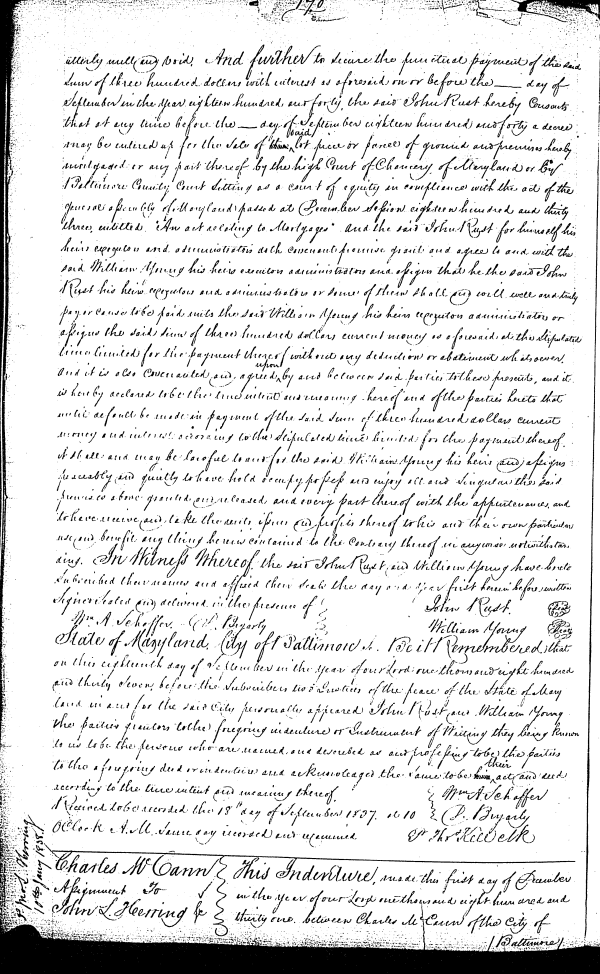 170
utterly null and void. And further to secure the punctual payment of the said
sum of three hundred dollars with interest as aforesaid on or before the ___ day of
September in the year eighteen hundred and forty, the said John Rust hereby consents
that at any time before the ___ day of September eighteen hundred and forty a decree
may be entered up for the sale of said lot piece or parcel of ground and premises hereby
mortgaged or any part thereof by the high Court of Chancery of Maryland or by
Baltimore County Court sitting as a court of equity in compliance with the act of the
general assembly of Maryland passed at December session eighteen hundred and thirty
three, entitled "An act relating to Mortgages" and the said John Rust for himself his
heirs executors and administrators doth covenant promise grant and agree to and with the
said William Young his heirs executors administrators and assigns that he the said John
Rust his heirs executors and administrators or some of them shall and will well and truly
pay or cause to be paid unto the said William Young his heirs executors administrators or
assigns the said sum of three hundred dollars current money as aforesaid at the stipulated
time limited for the payment thereof without any deduction or abatement whatsoever.
And it is also covenanted and agreed upon by and between said parties to these presents, and it
is hereby declared to be the true intent and meaning hereof and of the parties hereto that
until default be made in payment of the said sum of three hundred dollars current
money and interest according to the stipulated time limited for the payment thereof
it shall and may be lawful to and for the said William Young his heirs and assigns
peaceably and quietly to have hold occupy possess and enjoy all and singular the said
premises above granted and released and every part thereof with the appurtenances, and
to have receive and take the rents, issues and profits thereof to his and their own particular
use and benefit any thing herein contained to the contrary thereof in anywise notwithstan-
ding. In Witness Whereof the said John Rust, and William Young have hereto
subscribed their names and affixed their seals the day and year first herein before written
Signed sealed and delivered in the presence of } John Rust. Seal
Wm A. Schaffer. D. Byerly } William Young Seal
State of Maryland, City of Baltimore Sc. Be it Remembered, that
on this eighteenth day of September in the year of our Lord one thousand eight hundred
and thirty seven, before the Subscribers two Justices of the peace of the State of Mary
land in and for the said City personally appeared John Rust and William Young
the parties grantors to the foregoing indenture or Instrument of Writing they being known
to us to be the persons who are named and described as and professing to be the parties
to the aforegoing deed or indenture and acknowledged the same to be their act and deed
according to the true intent and meaning thereof. } Wm A. Schaffer
Received to be recorded the 18th day of September 1837, at 10 } D. Byerly
OClock A.M. same day recorded and examined
Charles McCann } This Indenture, made this first day of December
Assignment To } in the year of our Lord one thousand eight hundred and
John L. Herring } thirty one between Charles McCann of the City of
/Baltimore/